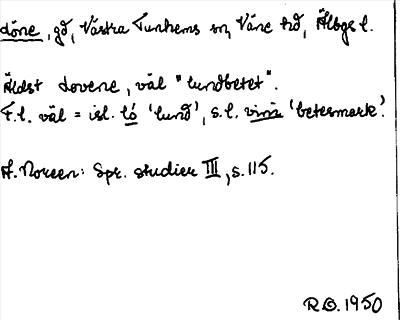 Löne, gd, Västra Tunhems sn, Väne hd, Älbgs l.
Äldst Lovene, väl "lundbetet".
F.l. väl = isl. ló 'lund', s.l. vin 'betesmark'.
A. Noreen: Spr. studier III, s. 115.
R.O. 1950